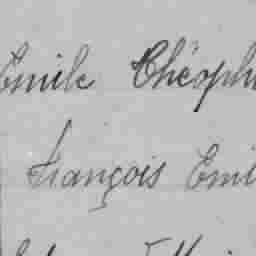 Emile Théoph
François Emi